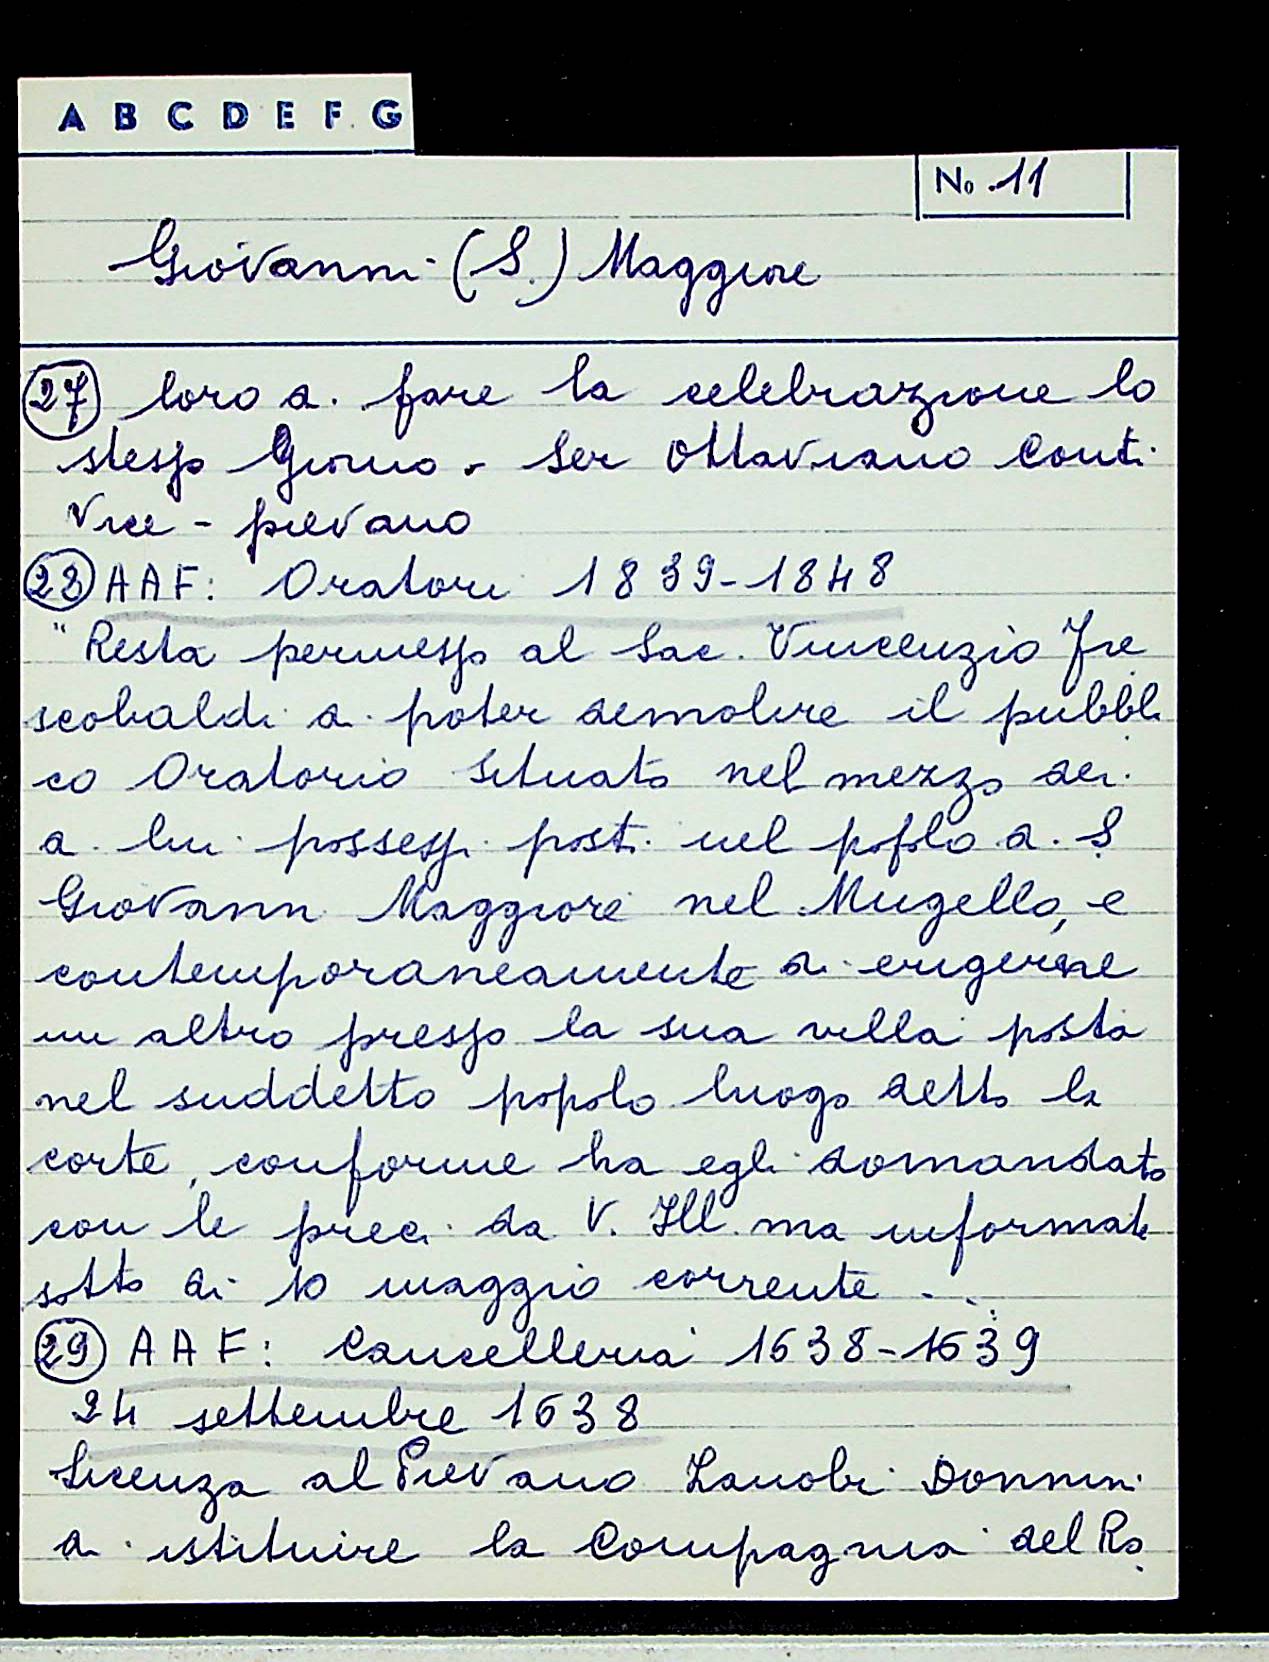 A B C D E F G
No. 11
Giovanni (S.) Maggiore
27 loro di fare la celebrazione lo
stesso Giorno. Ser Ottaviano Conti
Vice - pievano
28 AAF: Oratori 1839-1848
"Resta permesso al Sac. Vincenzio Fre
scobaldi di poter demolire il pubbli
co Oratorio situato nel mezzo dei
di lui possessi posti nel popolo di S
Giovanni Maggiore nel Mugello, e
contemporaneamente di erigerne
un altro presso la sua villa posta
nel suddetto popolo luogo detto la
corte, conforme ha egli domandato
con le preci da V. Ill.ma informate
sotto dì 10 maggio corrente ...
29 AAF: Cancelleria 1638-1639
24 settembre 1638
Licenza al Pievano Zanobi Donnini
di istituire la Compagnia del Ro